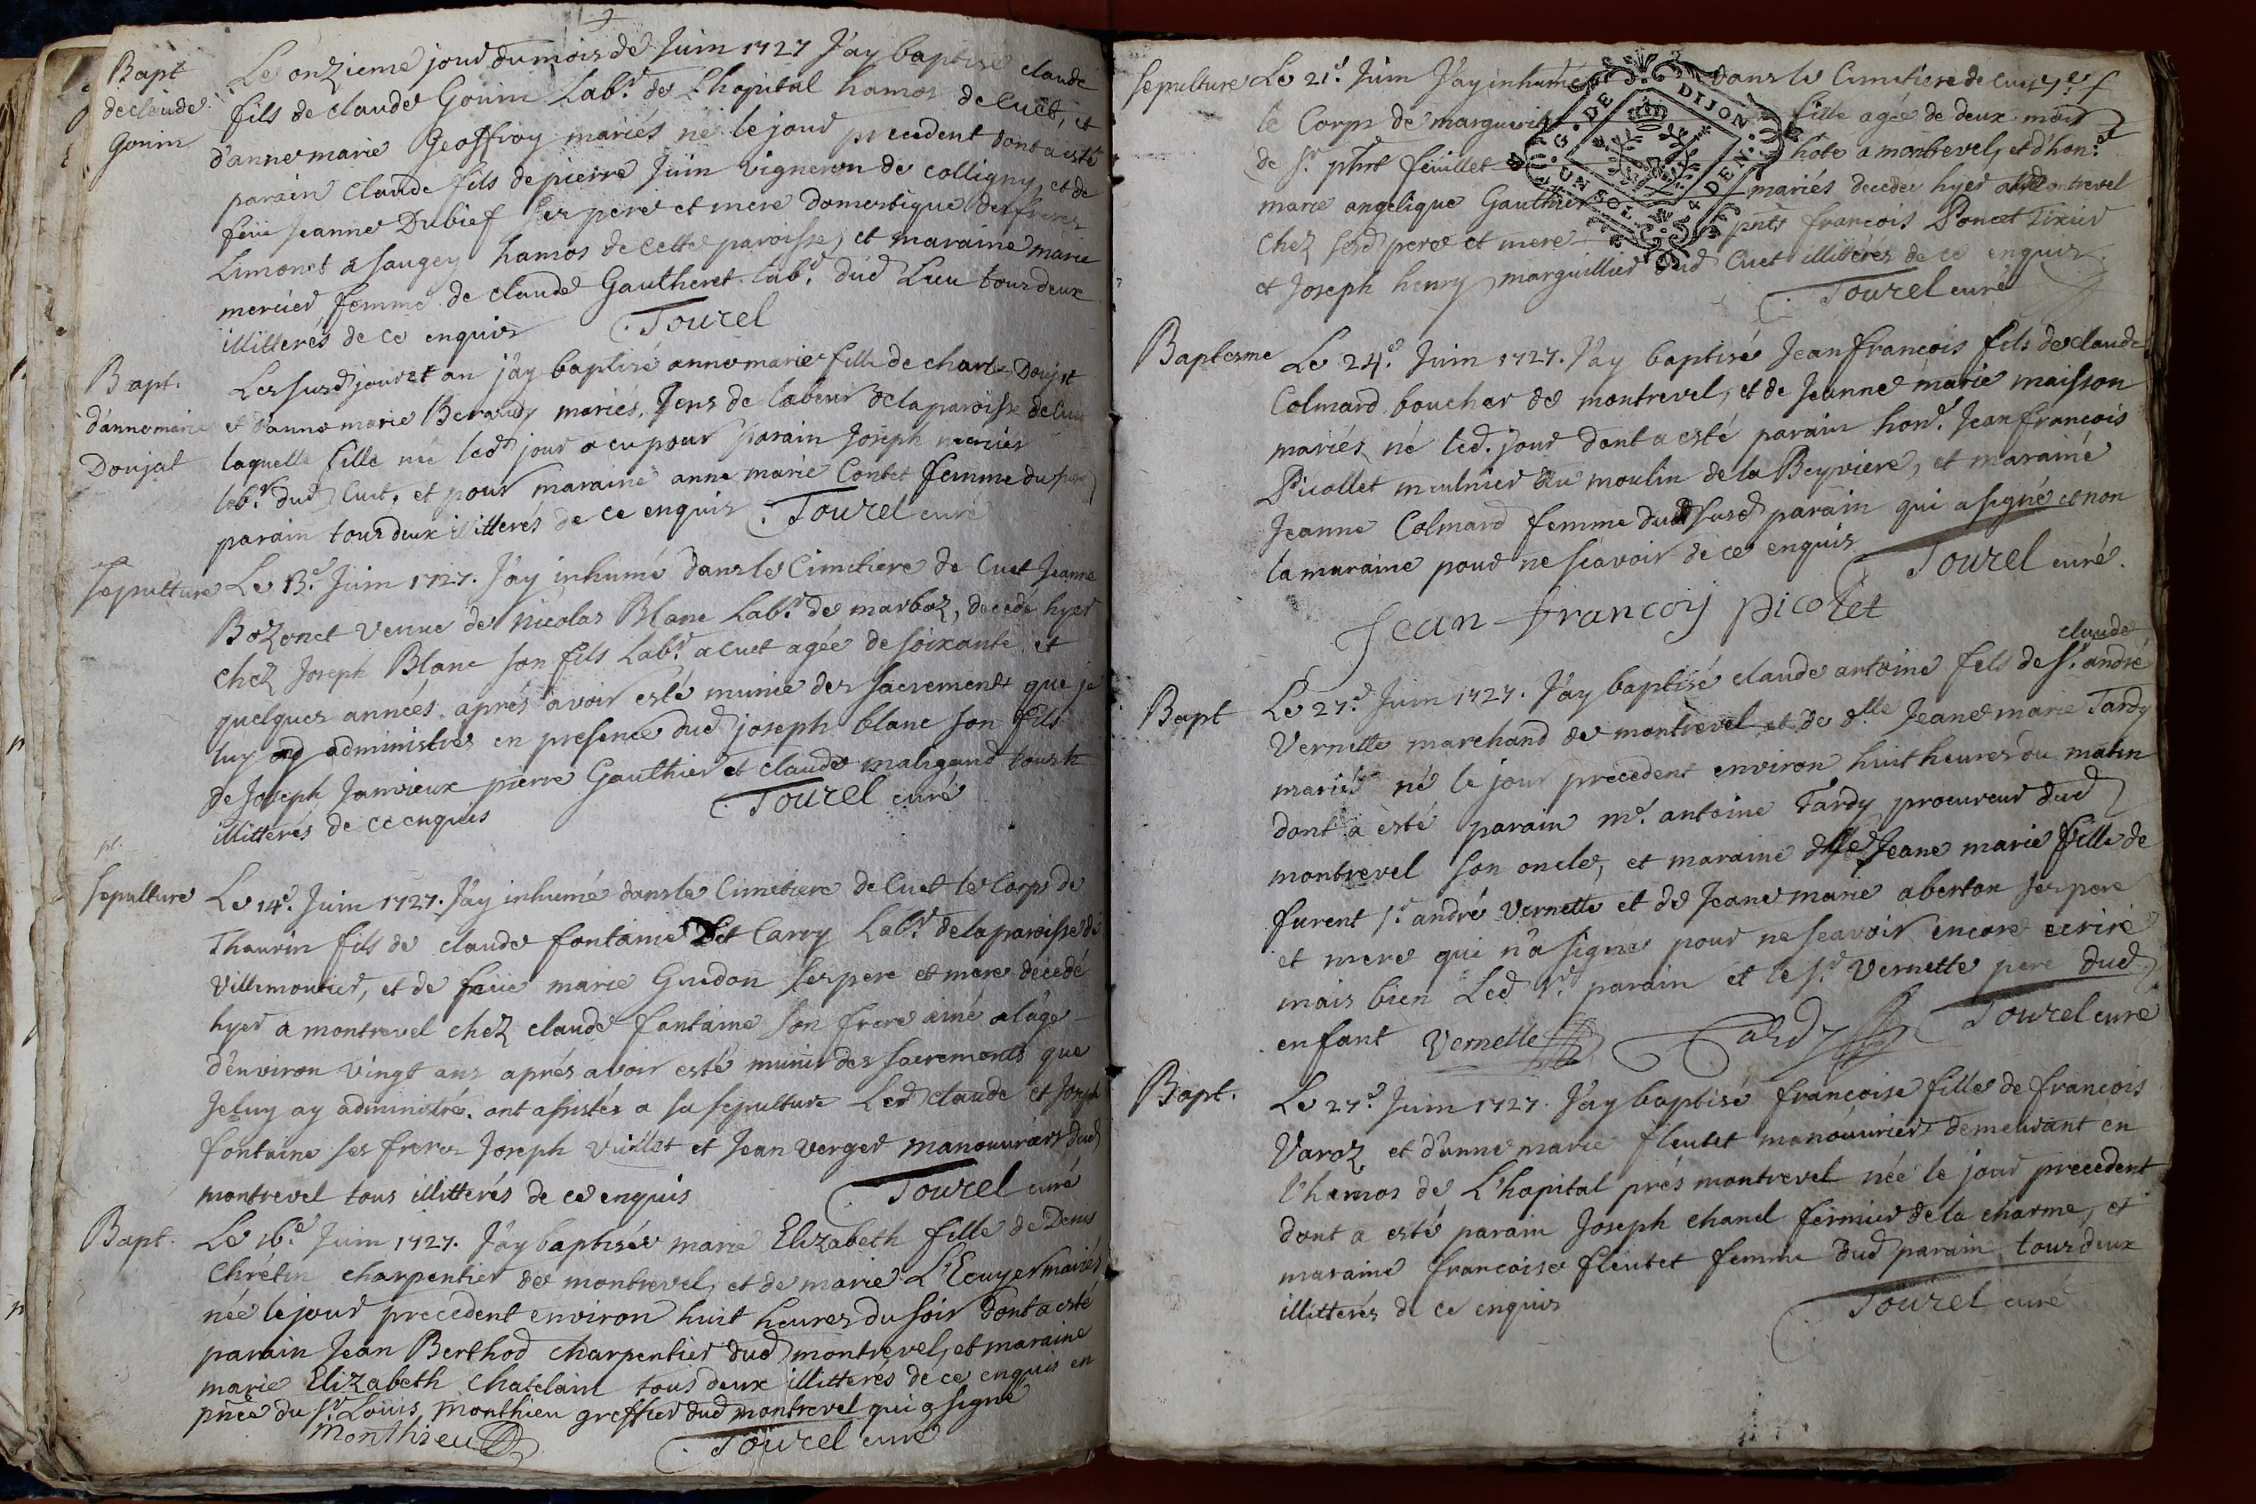 Bapt
de claude
Gonin
Le onzieme jour du mois de Juin 1727 J'ay baptisé claude
fils de claude Gonin Lab.r de L'hopital hamos de Cuet, et
d'anne marie Geoffroy mariés né le jour precedent dont a esté
parain claude fils de pierre Juin vigneron de colligny, et de
feüe Jeanne Dubief ses pere et mere domestique des freres
Limonet a saugey hamos de cette paroisse, et maraine marie
mercier femme de claude Gautheret lab.r dud Lieu tous deux
illitterés de ce enquis Tourel
Bapt.
d'anne marie
Doujat
Les susd jour et an j'ay baptisé anne marie fille de charle Doujat
et d'anne marie Beraudy mariés, Jens de labeur de la paroisse de Cuet
laquelle fille née led jour a eu pour parain Joseph mercier
lab.r dud Cuet, et pour maraine anne marie Contet femme du susd
parain tous deux illitterés de ce enquis Tourel curé
Sepulture Le 13.e Juin 1727. J'ay inhumé dans le Cimetiere de Cuet Jeanne
Bozonet veuve de Nicolas Blanc Lab.r de marboz, decedé hyer
chez Joseph Blanc son fils Lab.r a Cuet agée de soixante et
quelques années aprés avoir esté munie des sacrements que je
luy ay administrés en presence dud joseph blanc son fils
de Joseph Janvieux pierre Gauthier et claude maligand tous
illitterés de ce enquis Tourel curé
Sepulture Le 14.e Juin 1727. J'ay inhumé dans le Cimetiere de Cuet le Corps de
Thaurin fils de claude fontaine dit Carry Lab.r de la paroisse de
Villemoutier, et de feüe marie Guidon ses pere et mere décedé
hyer a montrevel chez claude fontaine son frere ainé a l'âge
d'environ vingt ans aprés avoir esté munis des sacrements que
Je luy ay administré, ont assistés a sa sepulture Led claude et Joseph
fontaine ses freres Joseph Vuillet et Jean verger manouuriers dud
montrevel tous illitterés de ce enquis Tourel curé
Bapt. Le 16.e Juin 1727. J'ay baptisée marie Elizabeth fille de Denis
Chrétin charpentier de montrevel, et de marie L'Ecuyer mariés
née le jour precedent environ huit heures du soir dont a esté
parain Jean Berthod charpentier dud montrevel, et maraine
marie Elizabeth Chatelain tous deux illitterés de ce enquis en
pñce du S.r Louis monthieu greffier dud montrevel qui a signé
Monthieu Tourel curé
Sepulture Le 21.e Juin J'ay inhumé dans le Cimetiere de Cuet
le Corps de marguerite fille agée de deux mois
de S.r phlt feuillet hote a montrevel, et d'hon.e
marie angelique Gauthier mariés decedée hyer a montrevel
chez sesd pere et mere pnts francois Poncet Tixier
et Joseph henry marguillier dud Cuet illitterés de ce enquis
Tourel curé
G. DE DIJON.
UN SOL 4 DEN.
Baptesme Le 24.e Juin 1727. J'ay baptisé Jean francois fils de claude
Colmard boucher de montrevel, et de Jeanne marie maisson
mariés né led. jour dont a esté parain hon.e Jean francois
Picollet meulnier au moulin de la Beyviere, et maraine
Jeanne Colmard femme du susd parain qui a signé et non
la maraine pour ne scavoir de ce enquis Tourel curé.
Jean francoij picolet
Bapt Le 27.e Juin 1727. J'ay baptisé claude antoine fils de S.r claude andré
Vernette marchand de montrevel et de d.lle Jeane marie Tardy
mariés né le jour precedent environ huit heures du matin
dont a esté parain m.e antoine Tardy procureur dud
montrevel son oncle, et maraine dlle Jeane marie fille de
furent S.r andré Vernette et de Jeane marie aberton ses pere
et mere qui n'a signée pour ne scavoir encore ecrire
mais bien Led S.r parain et le S.r Vernette pere dud
enfant Vernette Tardy Tourel curé
Bapt. Le 27.e Juin 1727. J'ay baptisé francoise fille de francois
Varoz et d'anne marie fleutet manouurier demeurant en
l'hamos de L'hopital prés montrevel née le jour precedent
dont a esté parain Joseph chanel fermier de la charme, et
maraine francoise fleutet femme dud parain tous deux
illitterés de ce enquis Tourel curé